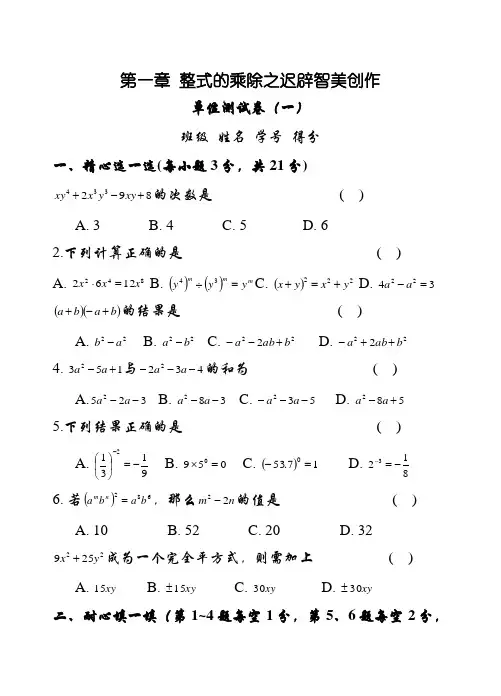 第一章 整式的乘除之迟辟智美创作
单位测试卷（一）
班级 姓名 学号 得分
一、精心选一选(每小题3分，共21分)
xy⁴+2x³y³-9xy+8的次数是 ( )
A. 3 B. 4 C. 5 D. 6
2.下列计算正确的是 ( )
A. 2x²·6x⁴=12x⁸ B. (y⁴)ᵐ÷(y³)ᵐ=yᵐ C. (x+y)²=x²+y² D. 4a²-a²=3
(a+b)(-a+b)的结果是 ( )
A. b²-a² B. a²-b² C. -a²-2ab+b² D. -a²+2ab+b²
4. 3a²-5a+1与-2a²-3a-4的和为 ( )
A.5a²-2a-3 B. a²-8a-3 C. -a²-3a-5 D. a²-8a+5
5.下列结果正确的是 ( )
A. (1/3)⁻²=-1/9 B. 9×5⁰=0 C. (-53.7)⁰=1 D. 2⁻³=-1/8
6. 若(aᵐbⁿ)²=a⁸b⁶，那么m²-2n的值是 ( )
A. 10 B. 52 C. 20 D. 32
9x²+25y²成为一个完全平方式，则需加上 ( )
A. 15xy B. ±15xy C. 30xy D. ±30xy
二、耐心填一填（第1~4题每空1分，第5、6题每空2分，